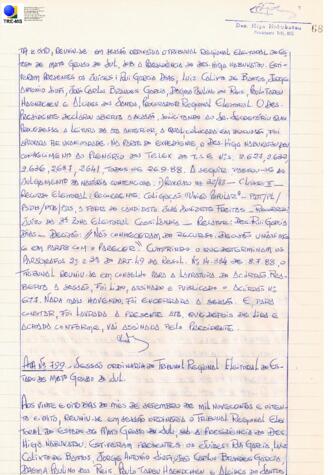 TRE-MS
Des. Higa Nabukatsu
Presidente TRE/MS
68
TA E OITO, REUNIU-SE EM SESSÃO ORDINÁRIA O TRIBUNAL REGIONAL ELEITORAL DO ES-
TADO DE MATO GROSSO DO SUL, SOB A PRESIDÊNCIA DO DES. HIGA NABUKATSU. ESTI-
VERAM PRESENTES OS JUÍZES: RUI GARCIA DIAS, LUIZ CARLOS DE BARROS, JORGE
ANTONIO SIUFI, JOSÉ CARLOS BRANDES GARCIA, DAGMA PAULINO DOS REIS, PAULO TADEU
HAENDCHEN E ALCIDES DOS SANTOS, PROCURADOR REGIONAL ELEITORAL. O DES.
PRESIDENTE DECLAROU ABERTA A SESSÃO, SOLICITANDO AO SR. SECRETÁRIO QUE
PROCEDESSE A LEITURA DA ATA ANTERIOR, A QUAL, COLOCADA EM DISCUSSÃO, FOI
APROVADA DE UNANIMIDADE. NA PARTE DO EXPEDIENTE, O DES. HIGA NABUKATSU DEU
CONHECIMENTO AO PLENÁRIO DOS TELEX DO T.S.E NºS: 2.627, 2632
2636, 2637, 2641, TODOS DE 26.9.88. A SEGUIR PASSOU-SE AO
JULGAMENTO DA MATÉRIA
ELEITORAL RECORRENTE: COLIGAÇÃO
JUÍZO DA 3ª ZONA ELEITORAL RELATOR: DES. RUI GARCIA
DIAS. DECISÃO: "NÃO CONHECERAM DO RECURSO. DECISÃO UNÂNIME
E EM PARTE COM O PARECER". CUMPRINDO O QUE DETERMINAM OS
PARÁGRAFOS 2º E 3º DO ART. 49 DA RESOL. Nº 14.384 DE 8.7.88, O
TRIBUNAL REUNIU-SE EM CONSELHO PARA A LAVRATURA DO ACÓRDÃO. REA-
BERTA A SESSÃO, FOI LIDO, ASSINADO E PUBLICADO O ACÓRDÃO Nº
673. NADA MAIS HAVENDO, FOI ENCERRADA A SESSÃO. E, PARA
CONSTAR, FOI LAVRADA A PRESENTE ATA, QUE, DEPOIS DE LIDA E
ACHADA CONFORME, VAI ASSINADA PELO PRESIDENTE.
ATA Nº 759. SESSÃO ORDINÁRIA DO TRIBUNAL REGIONAL ELEITORAL DO ES-
TADO DE MATO GROSSO DO SUL.
AOS VINTE E OITO DIAS DO MÊS DE SETEMBRO DE MIL NOVECENTOS E OITEN-
TA E OITO, REUNIU-SE EM SESSÃO ORDINÁRIA O TRIBUNAL REGIONAL ELEI-
TORAL DO ESTADO DE MATO GROSSO DO SUL, SOB A PRESIDÊNCIA DO DES.
HIGA NABUKATSU. ESTIVERAM PRESENTES OS JUÍZES: RUI GARCIA DIAS,
LUIZ CARLOS DE BARROS, JORGE ANTONIO SIUFI, JOSÉ CARLOS BRANDES GARCIA,
DAGMA PAULINO DOS REIS, PAULO TADEU HAENDCHEN E ALCIDES DOS SANTOS